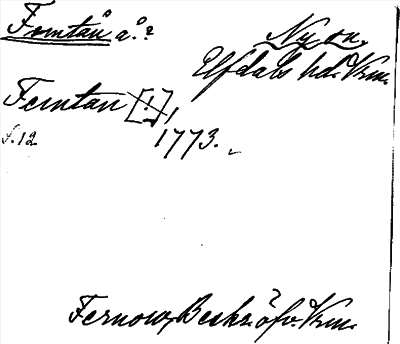 Femtån å.? Ny sn.
Elfdals hd. Vrm.
Femtan [!],
s. 12 1773.
Fernow, Beskr. öfv. Vrm.